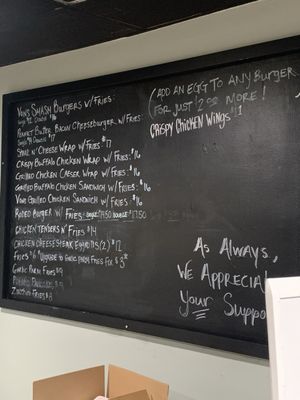 Vons Smash Burgers w/Fries:
Single $12 Double $16
Peanut Butter Bacon Cheeseburger w/Fries:
Single $14 Double $17
Steak n' Cheese Wrap w/Fries $17
Crispy Buffalo Chicken Wrap w/ Fries: $16
Grilled Chicken Caeser Wrap w/ Fries: $16
Grilled Buffalo Chicken Sandwich w/Fries: $16
Vons Grilled Chicken Sandwich w/ Fries: $16
Rodeo Burger w/ Fries: Single $14.50 Double $17.50
Chicken Tenders n' Fries $14
Chicken Cheese Steak Eggrolls (2) $12
Fries $6 *Upgrade to Garlic Parm Fries for $3*
Garlic Parm Fries $9
Zucchini Fries $8
(Add an egg to any Burger
for just $2.00 more!
Crispy Chicken Wings $1
As Always,
We Appreciate
Your Support